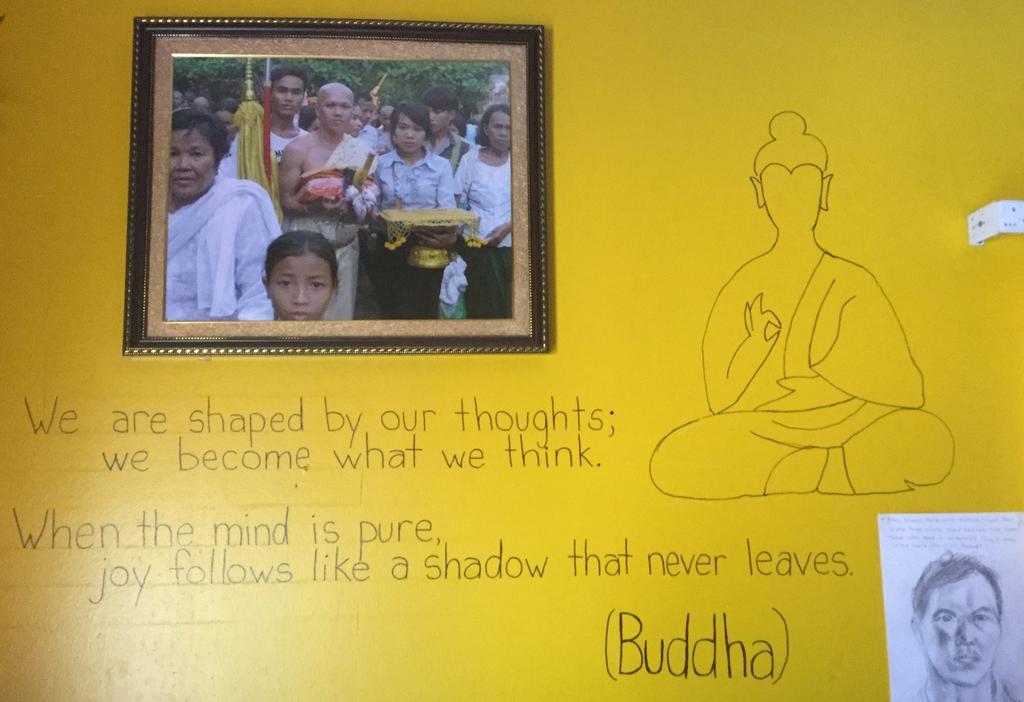 We are shaped by our thoughts;
we become what we think.
When the mind is pure,
joy follows like a shadow that never leaves.
(Buddha)